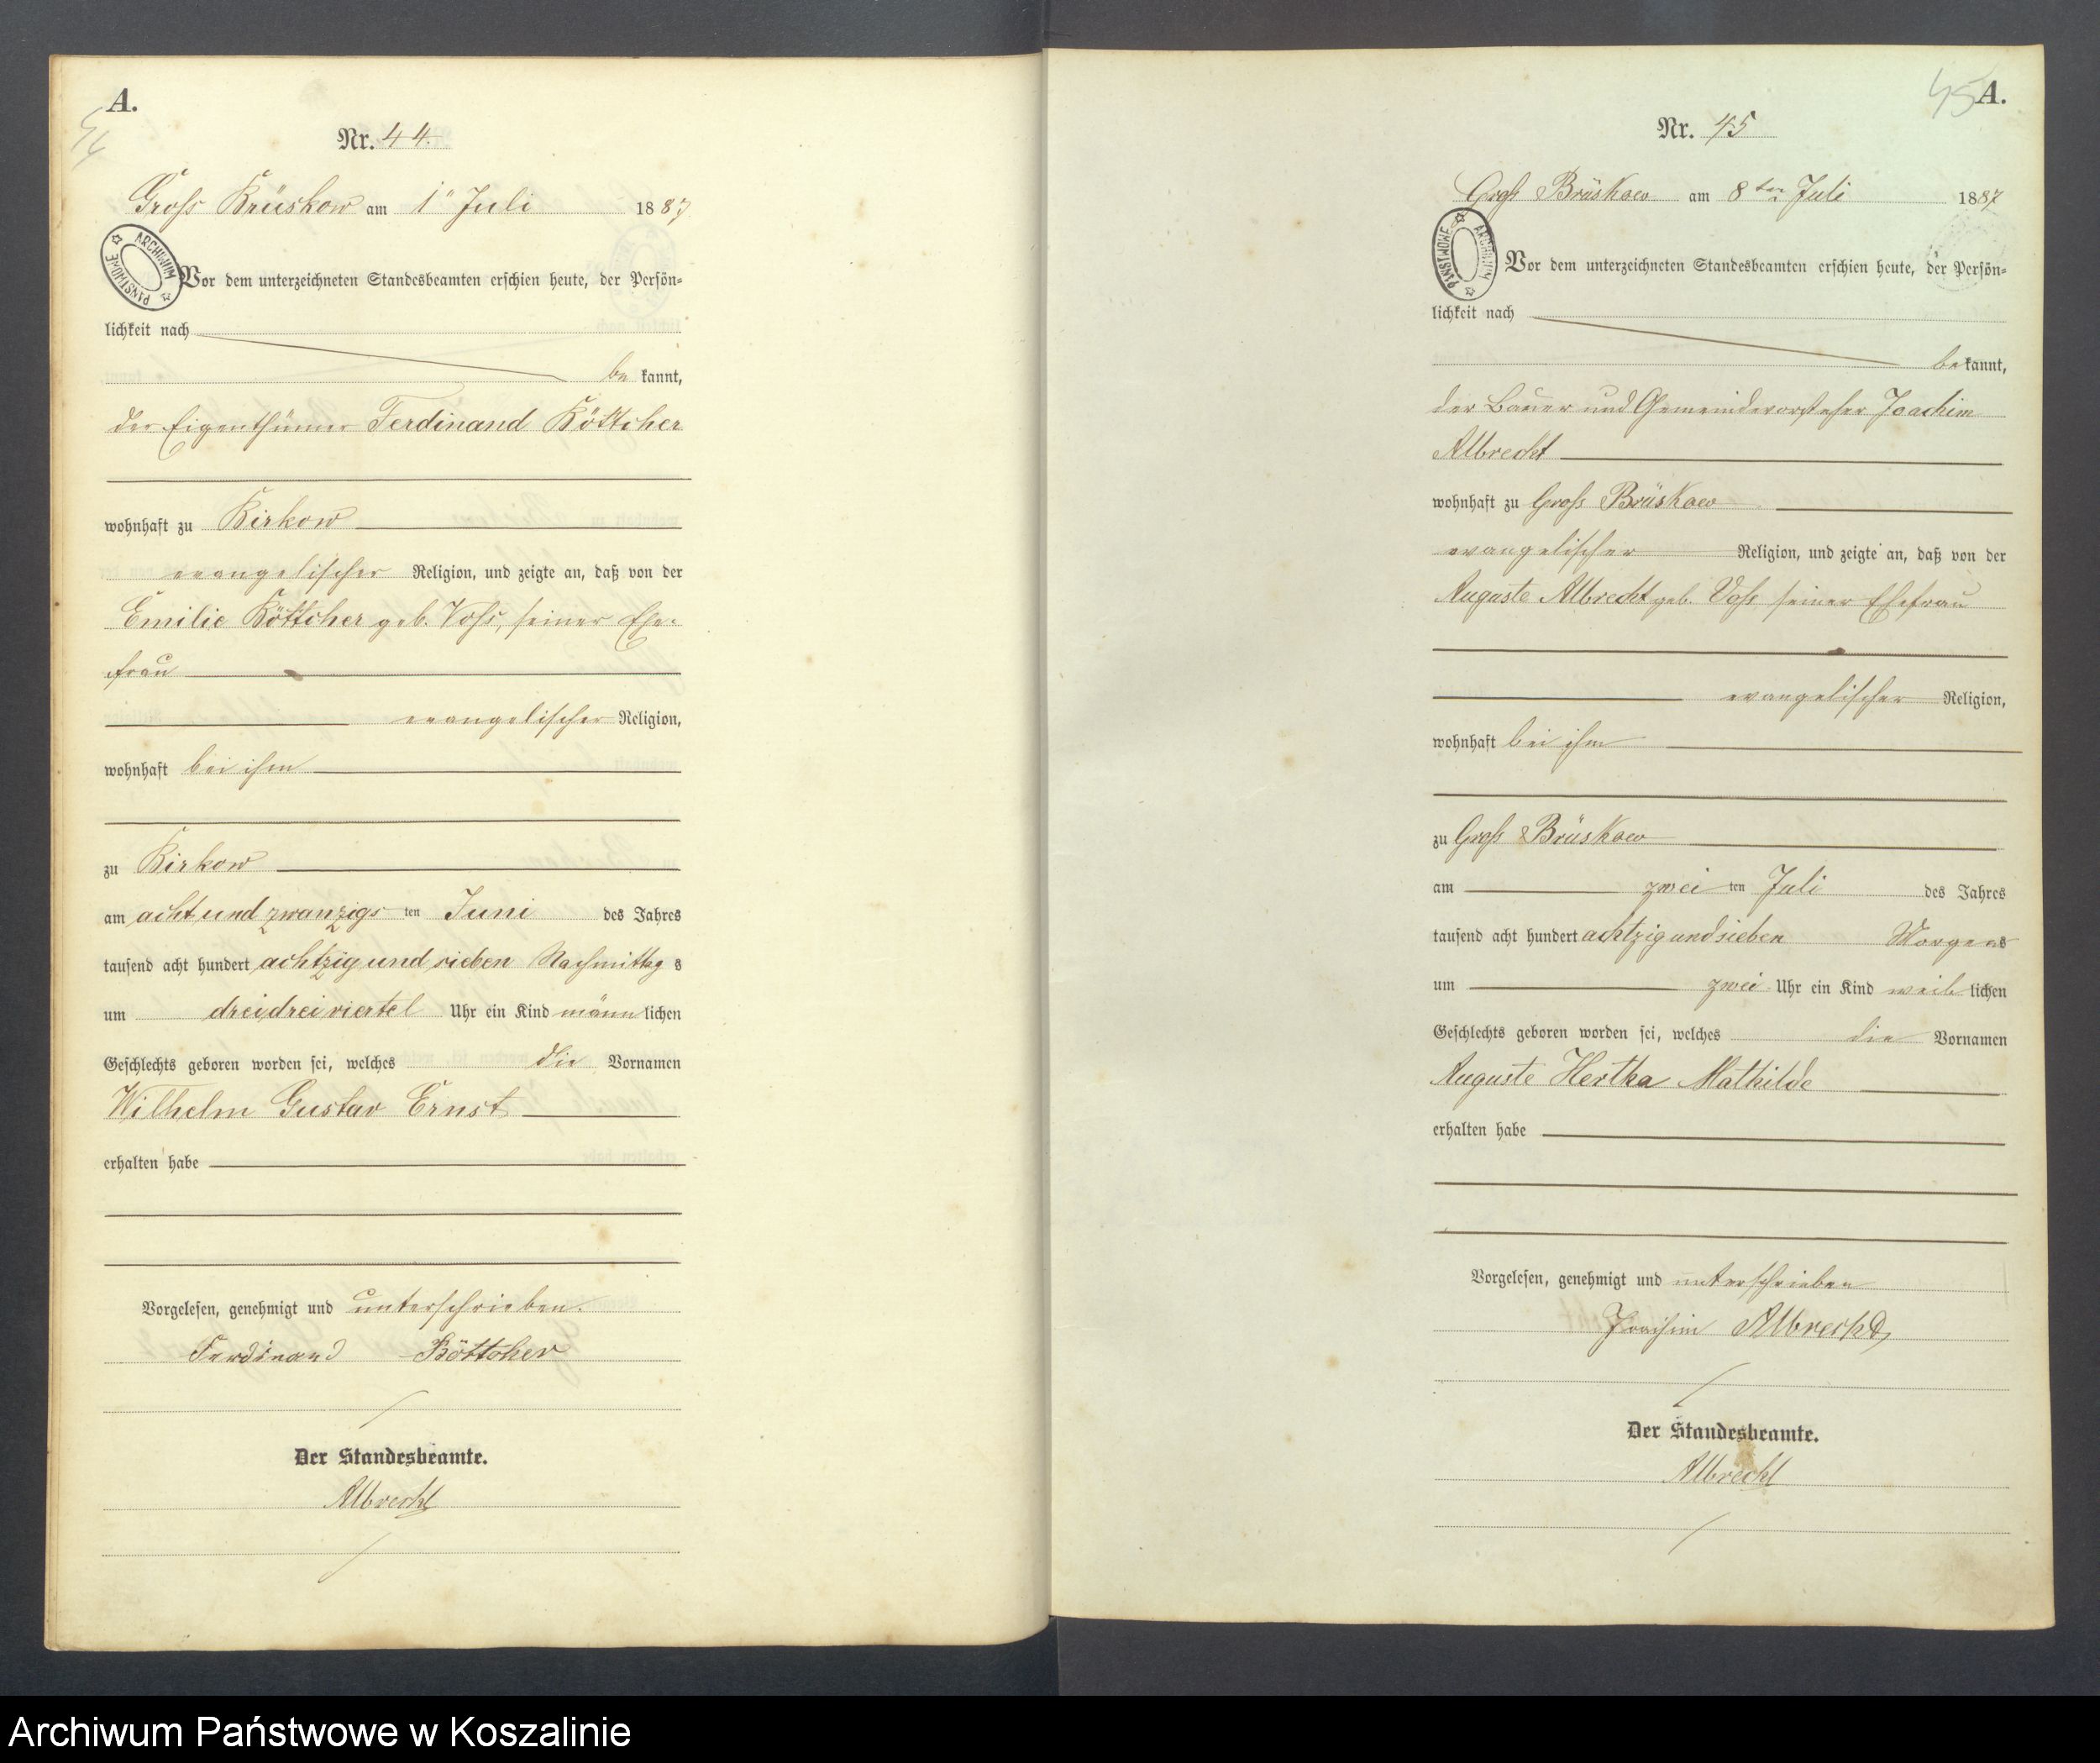 A.
44
Nr. 44.
Gross Brüskow am 1" Juli 1887
ARCHIWUM PAŃSTWOWE
Vor dem unterzeichneten Standesbeamten erschien heute, der Persön-
lichkeit nach
bekannt,
der Eigenthümer Ferdinand Böttcher
wohnhaft zu Birkow
evangelischer Religion, und zeigte an, daß von der
Emilie Böttcher geb. Voss, seiner Ehe-
frau
evangelischer Religion,
wohnhaft bei ihm
zu Birkow
am acht und zwanzigs ten Juni des Jahres
tausend acht hundert achtzig und sieben Nachmittags
um dreidreiviertel Uhr ein Kind männlichen
Geschlechts geboren worden sei, welches die Vornamen
Wilhelm Gustav Ernst
erhalten habe
Vorgelesen, genehmigt und unterschrieben.
Ferdinand Böttcher
Der Standesbeamte.
Albrecht
45 A.
Nr. 45
Groß Brüskow am 8ten Juli 1887
ARCHIWUM PAŃSTWOWE
Vor dem unterzeichneten Standesbeamten erschien heute, der Persön-
lichkeit nach
bekannt,
der Bauer und Gemeindevorsteher Joachim
Albrecht
wohnhaft zu Groß Brüskow
evangelischer Religion, und zeigte an, daß von der
Auguste Albrecht geb. Voß seiner Ehefrau
evangelischer Religion,
wohnhaft bei ihm
zu Groß Brüskow
am zwei ten Juli des Jahres
tausend acht hundert achtzig und sieben Morgens
um zwei Uhr ein Kind weiblichen
Geschlechts geboren worden sei, welches die Vornamen
Auguste Hertha Mathilde
erhalten habe
Vorgelesen, genehmigt und unterschrieben
Joachim Albrecht
Der Standesbeamte.
Albrecht
Archiwum Państwowe w Koszalinie